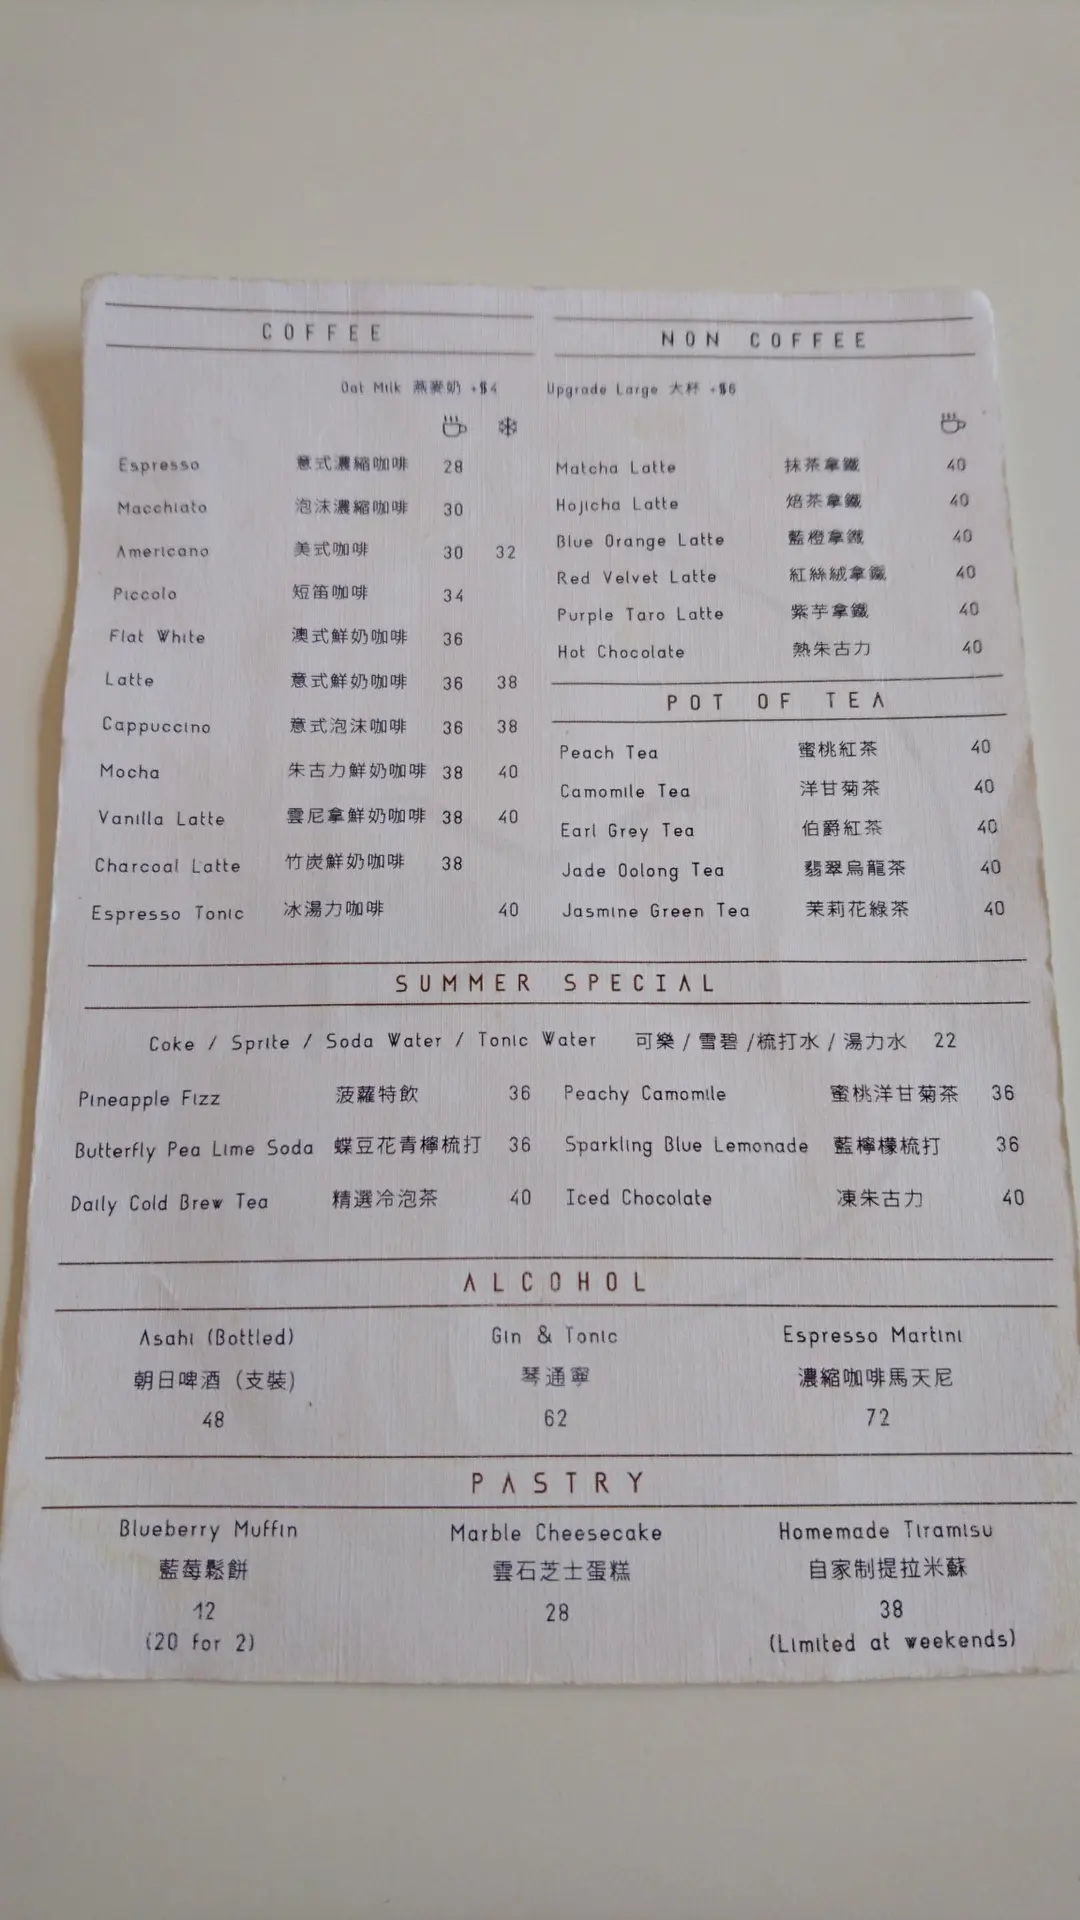 COFFEE
Oat Milk 燕麥奶 +$4
Espresso 意式濃縮咖啡 28
Macchiato 泡沫濃縮咖啡 30
Americano 美式咖啡 30 32
Piccolo 短笛咖啡 34
Flat White 澳式鮮奶咖啡 36
Latte 意式鮮奶咖啡 36 38
Cappuccino 意式泡沫咖啡 36 38
Mocha 朱古力鮮奶咖啡 38 40
Vanilla Latte 雲尼拿鮮奶咖啡 38 40
Charcoal Latte 竹炭鮮奶咖啡 38
Espresso Tonic 冰湯力咖啡 40
NON COFFEE
Upgrade Large 大杯 +$6
Matcha Latte 抹茶拿鐵 40
Hojicha Latte 焙茶拿鐵 40
Blue Orange Latte 藍橙拿鐵 40
Red Velvet Latte 紅絲絨拿鐵 40
Purple Taro Latte 紫芋拿鐵 40
Hot Chocolate 熱朱古力 40
POT OF TEA
Peach Tea 蜜桃紅茶 40
Camomile Tea 洋甘菊茶 40
Earl Grey Tea 伯爵紅茶 40
Jade Oolong Tea 翡翠烏龍茶 40
Jasmine Green Tea 茉莉花綠茶 40
SUMMER SPECIAL
Coke / Sprite / Soda Water / Tonic Water 可樂 / 雪碧 /梳打水 / 湯力水 22
Pineapple Fizz 菠蘿特飲 36 Peachy Camomile 蜜桃洋甘菊茶 36
Butterfly Pea Lime Soda 蝶豆花青檸梳打 36 Sparkling Blue Lemonade 藍檸檬梳打 36
Daily Cold Brew Tea 精選冷泡茶 40 Iced Chocolate 凍朱古力 40
ALCOHOL
Asahi (Bottled) Gin & Tonic Espresso Martini
朝日啤酒 (支裝) 琴通寧 濃縮咖啡馬天尼
48 62 72
PASTRY
Blueberry Muffin Marble Cheesecake Homemade Tiramisu
藍莓鬆餅 雲石芝士蛋糕 自家制提拉米蘇
12 28 38
(20 for 2) (Limited at weekends)